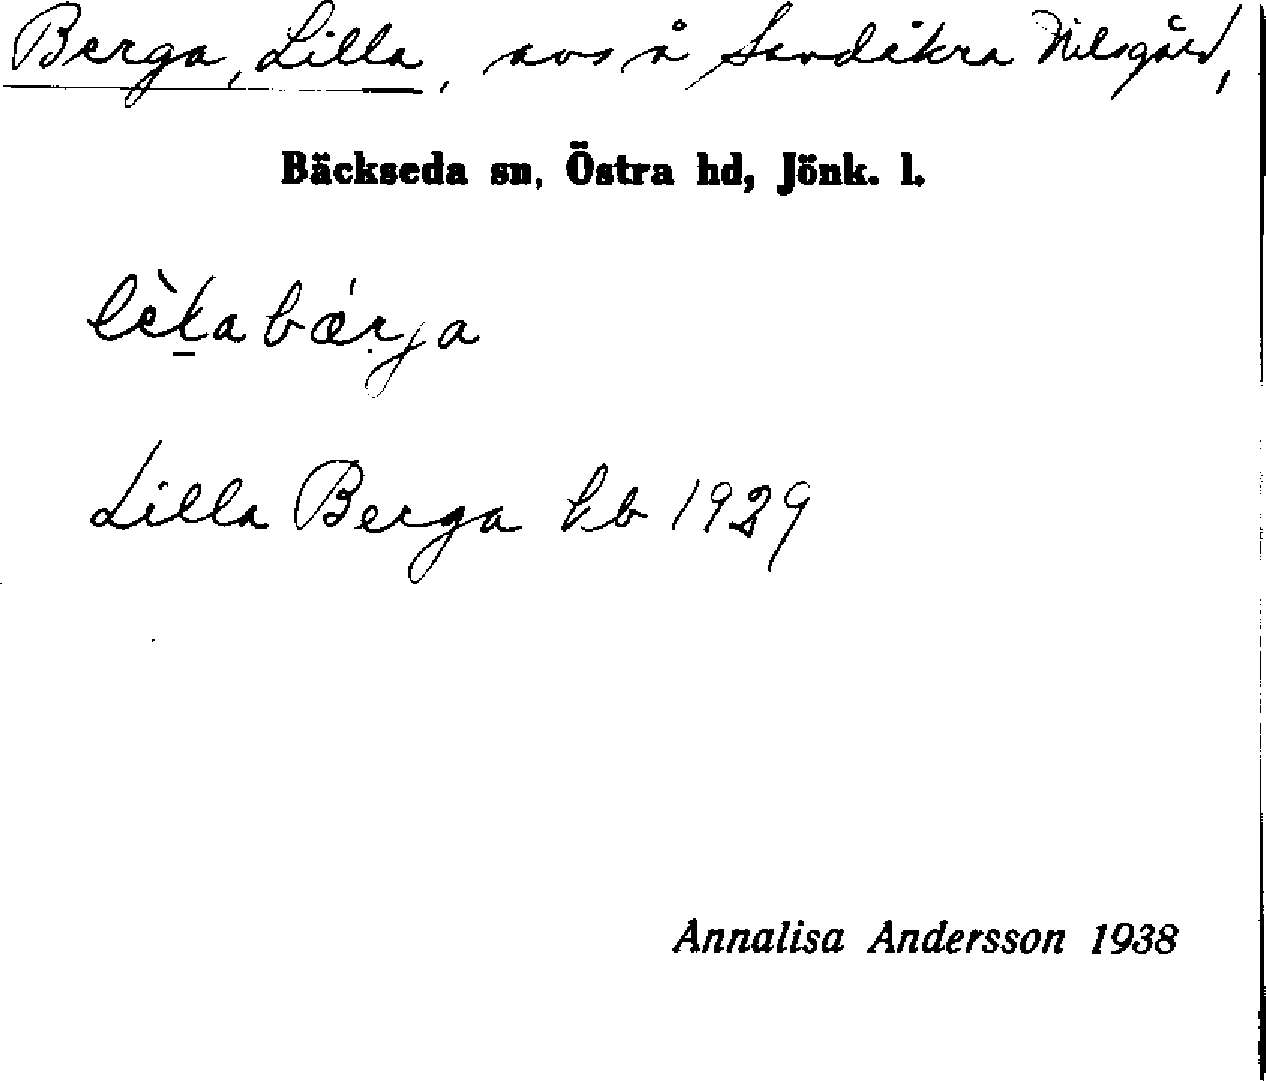 Berga, Lilla, avs å Sandåkra Nilsgård,
Bäckseda sn, Östra hd, Jönk. l.
Lilla Berga kb 1929
Annalisa Andersson 1938